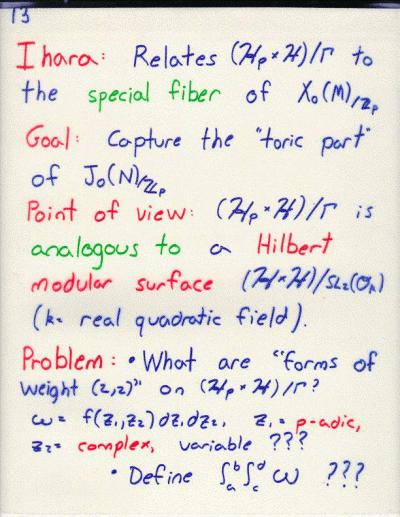 13
Ihara: Relates (ℋₚ×ℋ)/Γ to
the special fiber of X₀(M)/ℤₚ
Goal: Capture the "toric part"
of J₀(N)/ℤₚ
Point of view: (ℋₚ×ℋ)/Γ is
analogous to a Hilbert
modular surface (ℋ×ℋ)/SL₂(𝒪ₖ)
(k= real quadratic field).
Problem: • What are "forms of
weight (2,2)" on (ℋₚ×ℋ)/Γ?
ω= f(z₁,z₂)dz₁dz₂, z₁= p-adic,
z₂= complex, variable ???
• Define ∫ₐᵇ∫_c^d ω ???